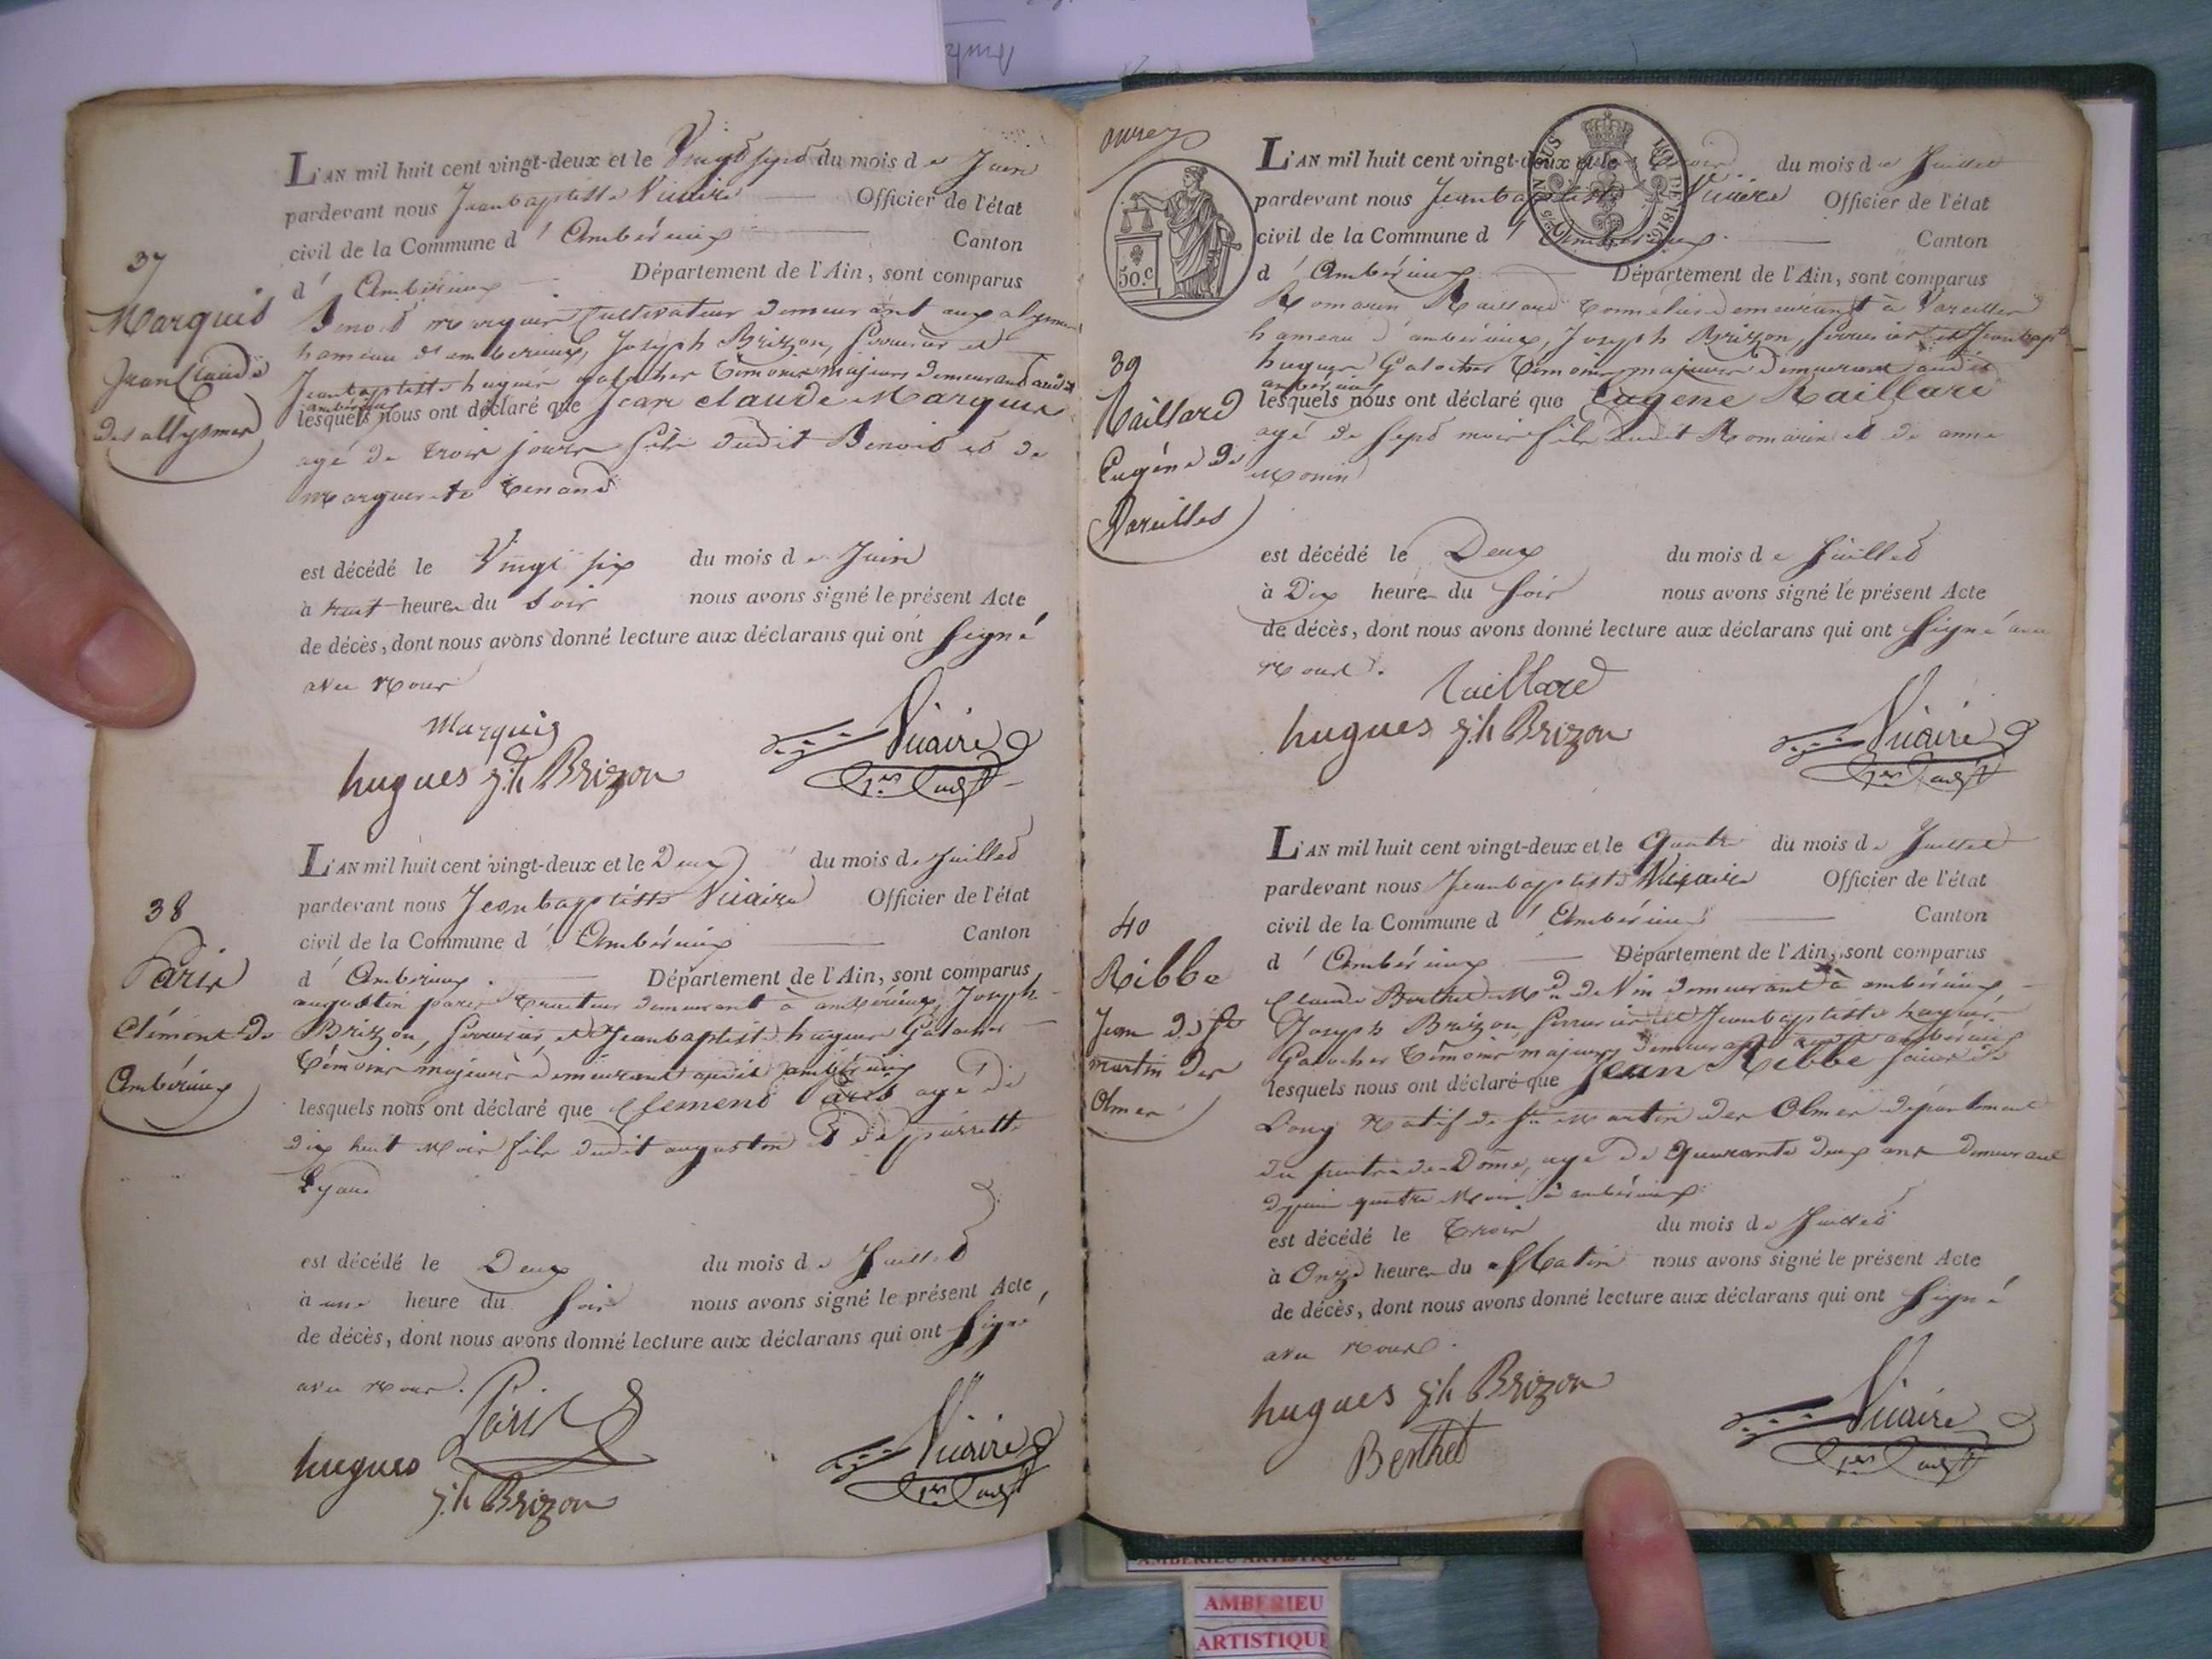 37
Marquis
Jean Claude
des allymes
L'AN mil huit cent vingt-deux et le Vingt sept du mois de Juin
pardevant nous Jeanbaptiste Vicaire Officier de l'état
civil de la Commune d' Ambérieux Canton
d' Ambérieux Département de l'Ain, sont comparus
Benoit marquis Cultivateur demeurant aux alymes
hameau d'amberieux, Joseph Brizon, serrurier et
Jeanbaptiste hugues galocher témoins majeurs demeurant audit
ambérieux
lesquels nous ont déclaré que Jean claude Marquis
agé de trois jours fils dudit Benoit et de
Marguerite tenand
est décédé le Vingt six du mois de Juin
à huit heures du Soir nous avons signé le présent Acte
de décès, dont nous avons donné lecture aux déclarans qui ont signé
avec Nous
Marquis
hugues jh Brizon
Vicaire
38
Paris
Clément de
Ambérieux
L'AN mil huit cent vingt-deux et le Deux du mois de Juillet
pardevant nous Jeanbaptiste Vicaire Officier de l'état
civil de la Commune d' Ambérieux Canton
d' Ambérieux. Département de l'Ain, sont comparus
augustin paris traiteur demeurant à ambérieux, Joseph
Brizon, serrurier et Jeanbaptiste hugues Galocher
témoins majeurs demeurant audit ambérieux
lesquels nous ont déclaré que Clement Paris agé de
dix huit Mois fils dudit augustin et de pierrette
est décédé le Deux du mois de Juillet
à une heure du soir nous avons signé le présent Acte
de décès, dont nous avons donné lecture aux déclarans qui ont signé
avec Nous.
Paris
hugues
jh Brizon
Vicaire
50.c
39
Raillard
Eugéne de
Vareilles
L'AN mil huit cent vingt-deux et le trois du mois de Juillet
pardevant nous Jeanbaptiste Vicaire Officier de l'état
civil de la Commune d' Ambérieux. Canton
d' Ambérieux Département de l'Ain, sont comparus
Romain Raillard tonnelier demeurant à Vareilles
hameau d'ambérieux, Joseph Brizon, serrurier et Jeanbapte
hugues Galocher témoins majeurs demeurant audit
ambérieux
lesquels nous ont déclaré que Eugene Raillard
agé de sept mois fils dudit Romain et de anne
Monin
est décédé le Deux du mois de Juillet
à Dix heures du soir nous avons signé le présent Acte
de décès, dont nous avons donné lecture aux déclarans qui ont signé avec
Nous.
Raillard
hugues jh Brizon
Vicaire
40
Ribbe
Jean de St
martin des
Olmes
L'AN mil huit cent vingt-deux et le Quatre du mois de Juillet
pardevant nous Jeanbaptiste Vicaire Officier de l'état
civil de la Commune d' Ambérieux Canton
d' Ambérieux Département de l'Ain, sont comparus
Claude Berthet Md de Vin demeurant à ambérieux,
Joseph Brizon serrurier et Jeanbaptiste hugues
Galocher témoins majeurs demeurant audit ambérieux
lesquels nous ont déclaré que Jean Ribbe scieur de
Long Natif de St Martin des Olmes département
du puits de Dome, agé de Quarante deux ans demeurant
depuis quatre Mois à ambérieux
est décédé le trois du mois de Juillet
à Onze heures du Matin nous avons signé le présent Acte
de décès, dont nous avons donné lecture aux déclarans qui ont signé
avec Nous.
hugues jh Brizon
Berthet
Vicaire
AMBERIEU ARTISTIQUE
AMBERIEU
ARTISTIQUE